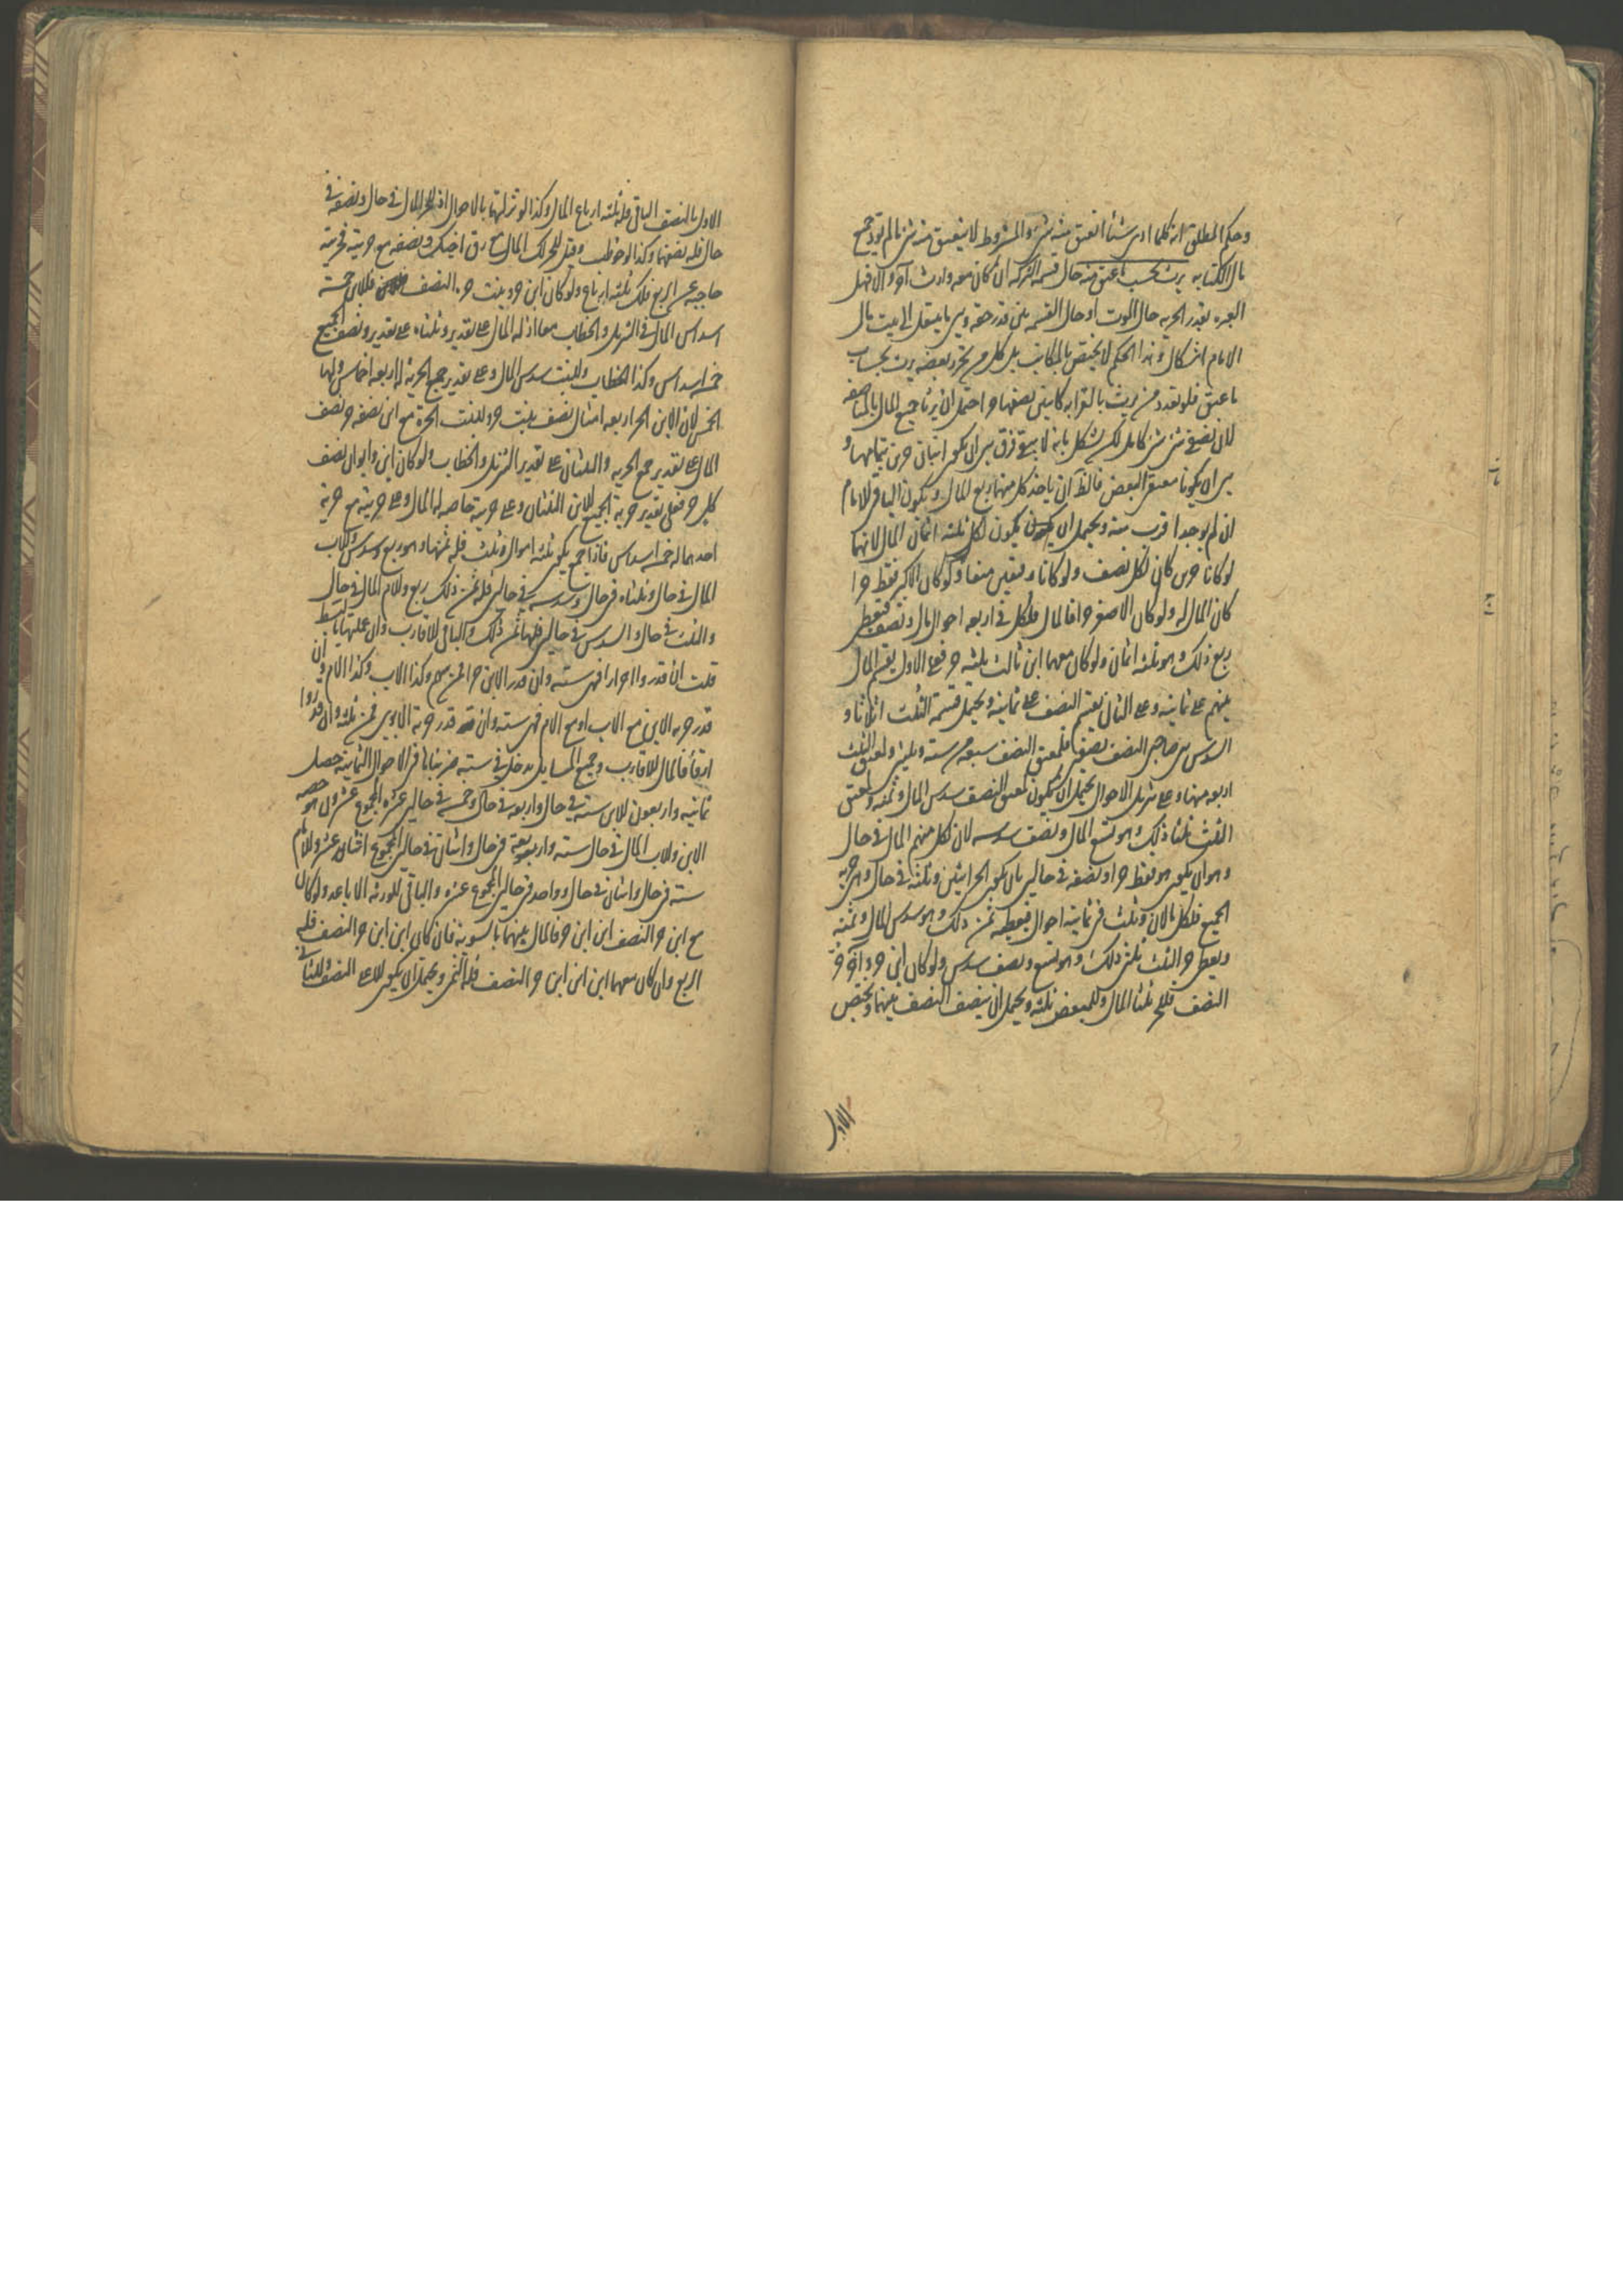 وحكم المطلق انه كلما ادى شيئا انعتق منه بنسبته والمشروط لا ينعتق منه شئ ما لم يؤد جميع
مال الكتابه يرث بحسب ما عتق منه حال قسمة التركه ان كان معه وارث آخر والا فهل
العبره بقدر الحريه حال الموت او حال القسمه بين قدر حقه وبين ما ينتقل الى بيت مال
الامام اشكال وهذا الحكم لا يختص بالمكاتب بل كل من تحرر بعضه يرث بحساب
ما عتق فلو تعدد من يرث بالقرابه كابنين نصفهما حر احتمل ان يرثا جميع المال بالمناصفه
لان نصفي شئ شئ كامل لكن يشكل بانه لا يبقى فرق بين ان يكون ابنان حرين بتمامهما و
بين ان يكونا معتقي البعض فالظ ان ياخذ كل منهما ربع المال ويكون الباقي للامام
ان لم يوجد اقرب منه ويحتمل ان يكون لكل ثلثه اثمان المال لانهما
لو كانا حرين كان لكل نصف ولو كانا رقيقين منعا ولو كان الاكبر فقط حرا
كان المال له ولو كان الاصغر حرا فالمال فلكل في اربعه احوال مال ونصف فيعطى
ربع ذلك وهو ثلثه اثمان ولو كان معهما ابن ثالث ثلثه حر فعلى الاول يقسم المال
بينهم على ثمانيه وعلى الثاني يقسم النصف على ثمانيه ويحتمل قسمة الثلث اثلاثا و
السدس بين صاحبي النصف نصفين فلمعتق النصف سبعه من سته وثلثين ولمعتق الثلث
اربعه منها وعلى تنزيل الاحوال يحتمل ان يكون لمعتق النصف سدس المال وثمنه ولمعتق
الثلث ثلثا ذلك وهو تسع المال ونصف سدسه لان لكل منهم المال في حال
وهو ان يكون هو فقط حرا ونصفه في حالين بان يكون الحر اثنين وثلثه في حال وهي حرية
الجميع فلكل مالان وثلث في ثمانيه احوال فيعطيه ثمن ذلك وهو سدس المال وثمنه
ويعطى حر الثلث ثلثي ذلك وهو تسع ونصف سدس ولو كان ابن حر وآخر حر
النصف فللحر ثلثا المال وللمبعض ثلثه ويحتمل ان ينصف النصف بينهما ويختص
الاول
الاول بالنصف الباقي فله ثلثه ارباع المال وكذا لو نزلتهما بالاحوال اذ للحر المال في حال ونصفه في
حال فله نصفهما وكذا لو خوطب وقيل للحر لك المال مع رق اخيك ونصفه مع حريته فحريته
حاجبه عن الربع فلك ثلثه ارباع ولو كان ابن حر وبنت حر النصف فللابن خمسة
اسداس المال في التنزيل والخطاب معا اذ له المال على تقدير وثلثاه على تقدير ونصف الجميع
خمسه اسداس وكذا الخطاب وللبنت سدس المال وعلى تقدير جمع الحريه له اربعه اخماس ولها
الخمس لان الابن الحر اربعه امثال نصف بنت حر وللبنت الحره مع ابن نصفه حر نصف
المال على تقدير جمع الحريه والثلثان على تقدير التنزيل والخطاب ولو كان ابن وابوان نصف
كل حر فعلى تقدير حرية الجميع للابن الثلثان وعلى حريته خاصه له المال وعلى حريته مع حرية
احدهما له خمسه اسداس فاذا جمع يكون ثلثه اموال وثلث فله ثمنها وهو ربع وسدس وللاب
المال في حال وثلثاه في حال وسدسه في حالين فله ثمن ذلك ربع وللام المال في حال
والثلث في حال والسدس في حالين فلها ثمن ذلك والباقي للاقارب وان عملتها بالبسط
قلت ان قدروا احرارا فهي سته وان قدر الابن حرا فمن سهم وكذا الاب وكذا الام وان
قدر حرية الابن مع الاب او مع الام فهي سته وان قدر حرية الابوين فمن ثلثه وان قدروا
ارقا فالمال للاقارب وجميع المسايل يدخل في سته ضربناها في الاحوال الثمانيه حصل
ثمانيه واربعون للابن سته في حال واربعه في حال وخمسه في حالين عشره المجموع عشرون هو حصه
الابن وللاب المال في حال سته واربعه في حال واثنان في حالين المجموع اثنا عشر وللام
سته في حال واثنان في حال وواحد في حالين المجموع عشره والباقي للورثه الاباعد ولو كان
مع ابن حر النصف ابن ابن حر فالمال بينهما بالسويه فان كان ابن ابن حر النصف فله
الربع وان كان معهما ابن ابن ابن حر النصف فله الثمن ويحتمل ان يكون للاعلى النصف وللثاني